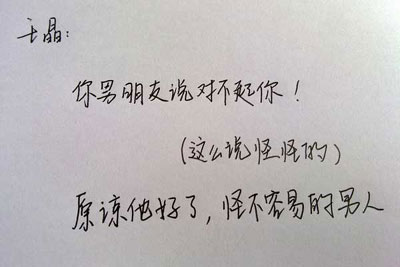 王晶:
你男朋友说对不起你!
(这么说怪怪的)
原谅他好了,怪不容易的男人